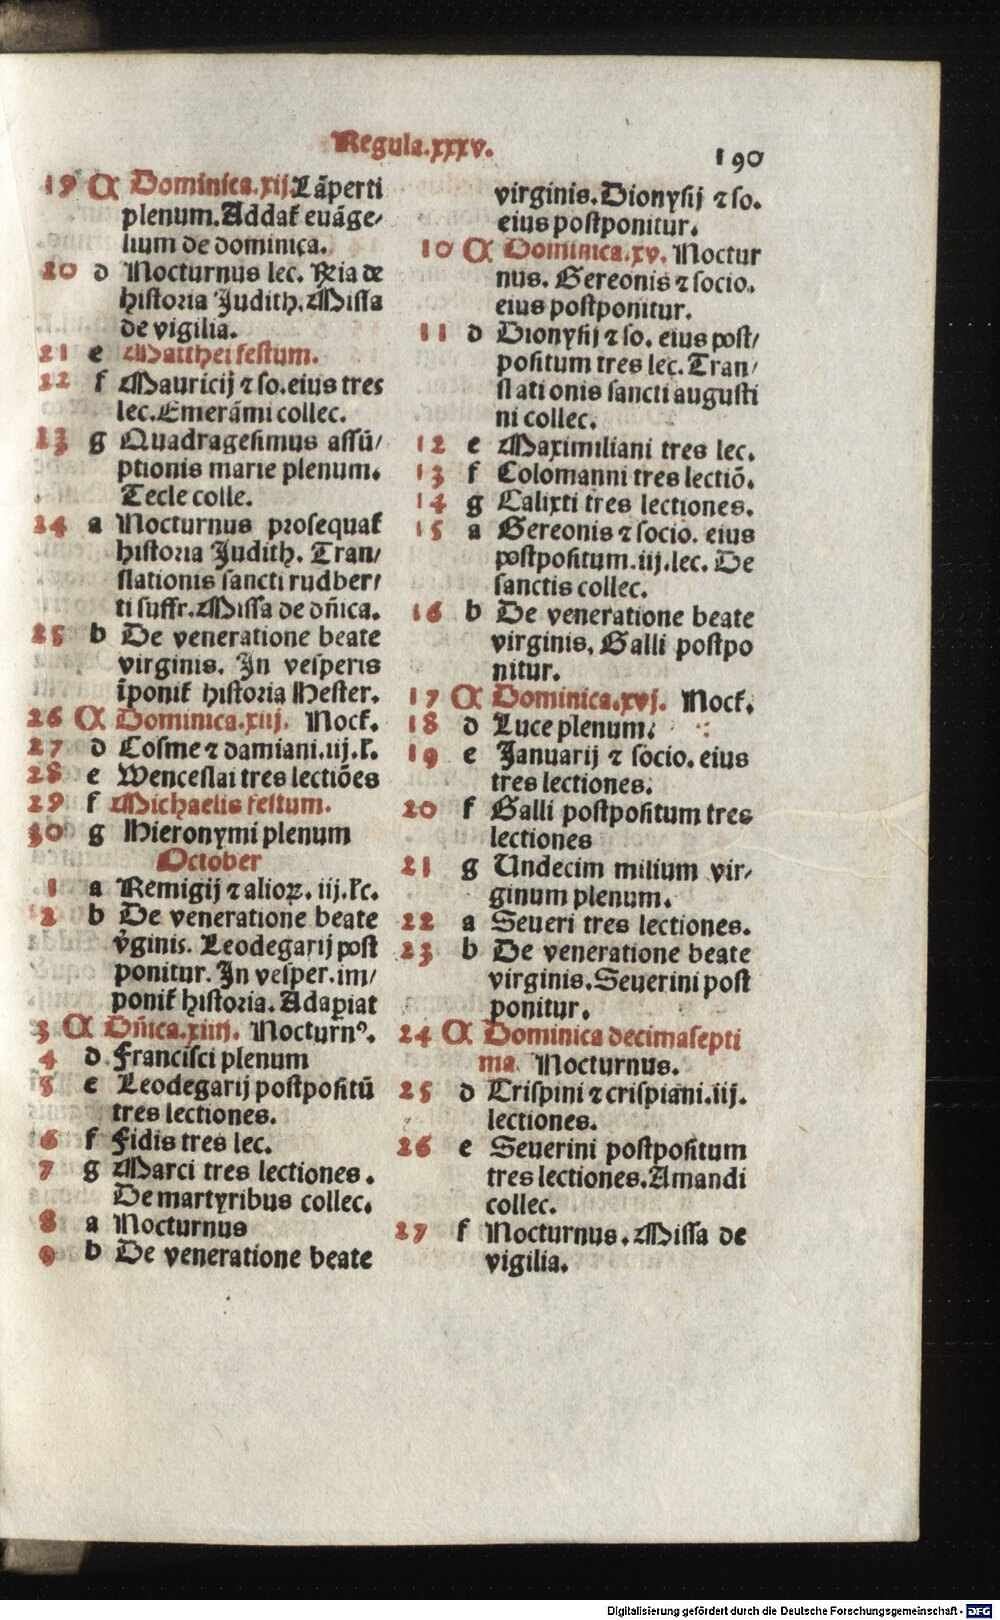 Regula.xxxv.
190
19 C Dominica.xij. Lāperti
plenum. Addat̄ euāge/
lium de dominica.
20 d Nocturnus lec. Feria de
historia Judith. Missa
de vigilia.
21 e Matthei festum.
22 f Mauricij ⁊ so. eius tres
lec. Emerāmi collec.
23 g Quadragesimus assū/
ptionis marie plenum.
Tecle colle.
24 a Nocturnus prosequat̄
historia Judith. Tran/
slationis sancti rudber/
ti suffr. Missa de dn̄ica.
25 b De veneratione beate
virginis. In vesperis
īponit̄ historia Hester.
26 C Dominica.xiij. Noct̄.
27 d Cosme ⁊ damiani.iij.l'.
28 e Wenceslai tres lectiōes
29 f Michaelis festum.
30 g Hieronymi plenum
October
1 a Remigij ⁊ alioꝝ. iij.l'c.
2 b De veneratione beate
v̓ginis. Leodegarij post
ponitur. In vesper. im/
ponit̄ historia. Adaꝑiat
3 C Dn̄ica.xiiij. Nocturnꝰ.
4 d Francisci plenum
5 e Leodegarij postpositū
tres lectiones.
6 f Fidis tres lec.
7 g Marci tres lectiones.
De martyribus collec.
8 a Nocturnus
9 b De veneratione beate
virginis. Dionysij ⁊ so.
eius postponitur.
10 C Dominica.xv. Noctur
nus. Gereonis ⁊ socio.
eius postponitur.
11 d Dionysij ⁊ so. eius post/
positum tres lec. Tran/
slati onis sancti augusti
ni collec.
12 e Maximiliani tres lec.
13 f Colomanni tres lectiō.
14 g Calixti tres lectiones.
15 a Gereonis ⁊ socio. eius
postpositum.iij.lec. De
sanctis collec.
16 b De veneratione beate
virginis. Galli postpo
nitur.
17 C Dominica.xvj. Noct̄.
18 d Luce plenum.
19 e Januarij ⁊ socio. eius
tres lectiones.
20 f Galli postpositum tres
lectiones
21 g Undecim milium vir/
ginum plenum.
22 a Seueri tres lectiones.
23 b De veneratione beate
virginis. Seuerini post
ponitur.
24 C Dominica decimasepti
ma Nocturnus.
25 d Crispini ⁊ crispiani.iij.
lectiones.
26 e Seuerini postpositum
tres lectiones. Amandi
collec.
27 f Nocturnus. Missa de
vigilia.
Digitalisierung gefördert durch die Deutsche Forschungsgemeinschaft - DFG